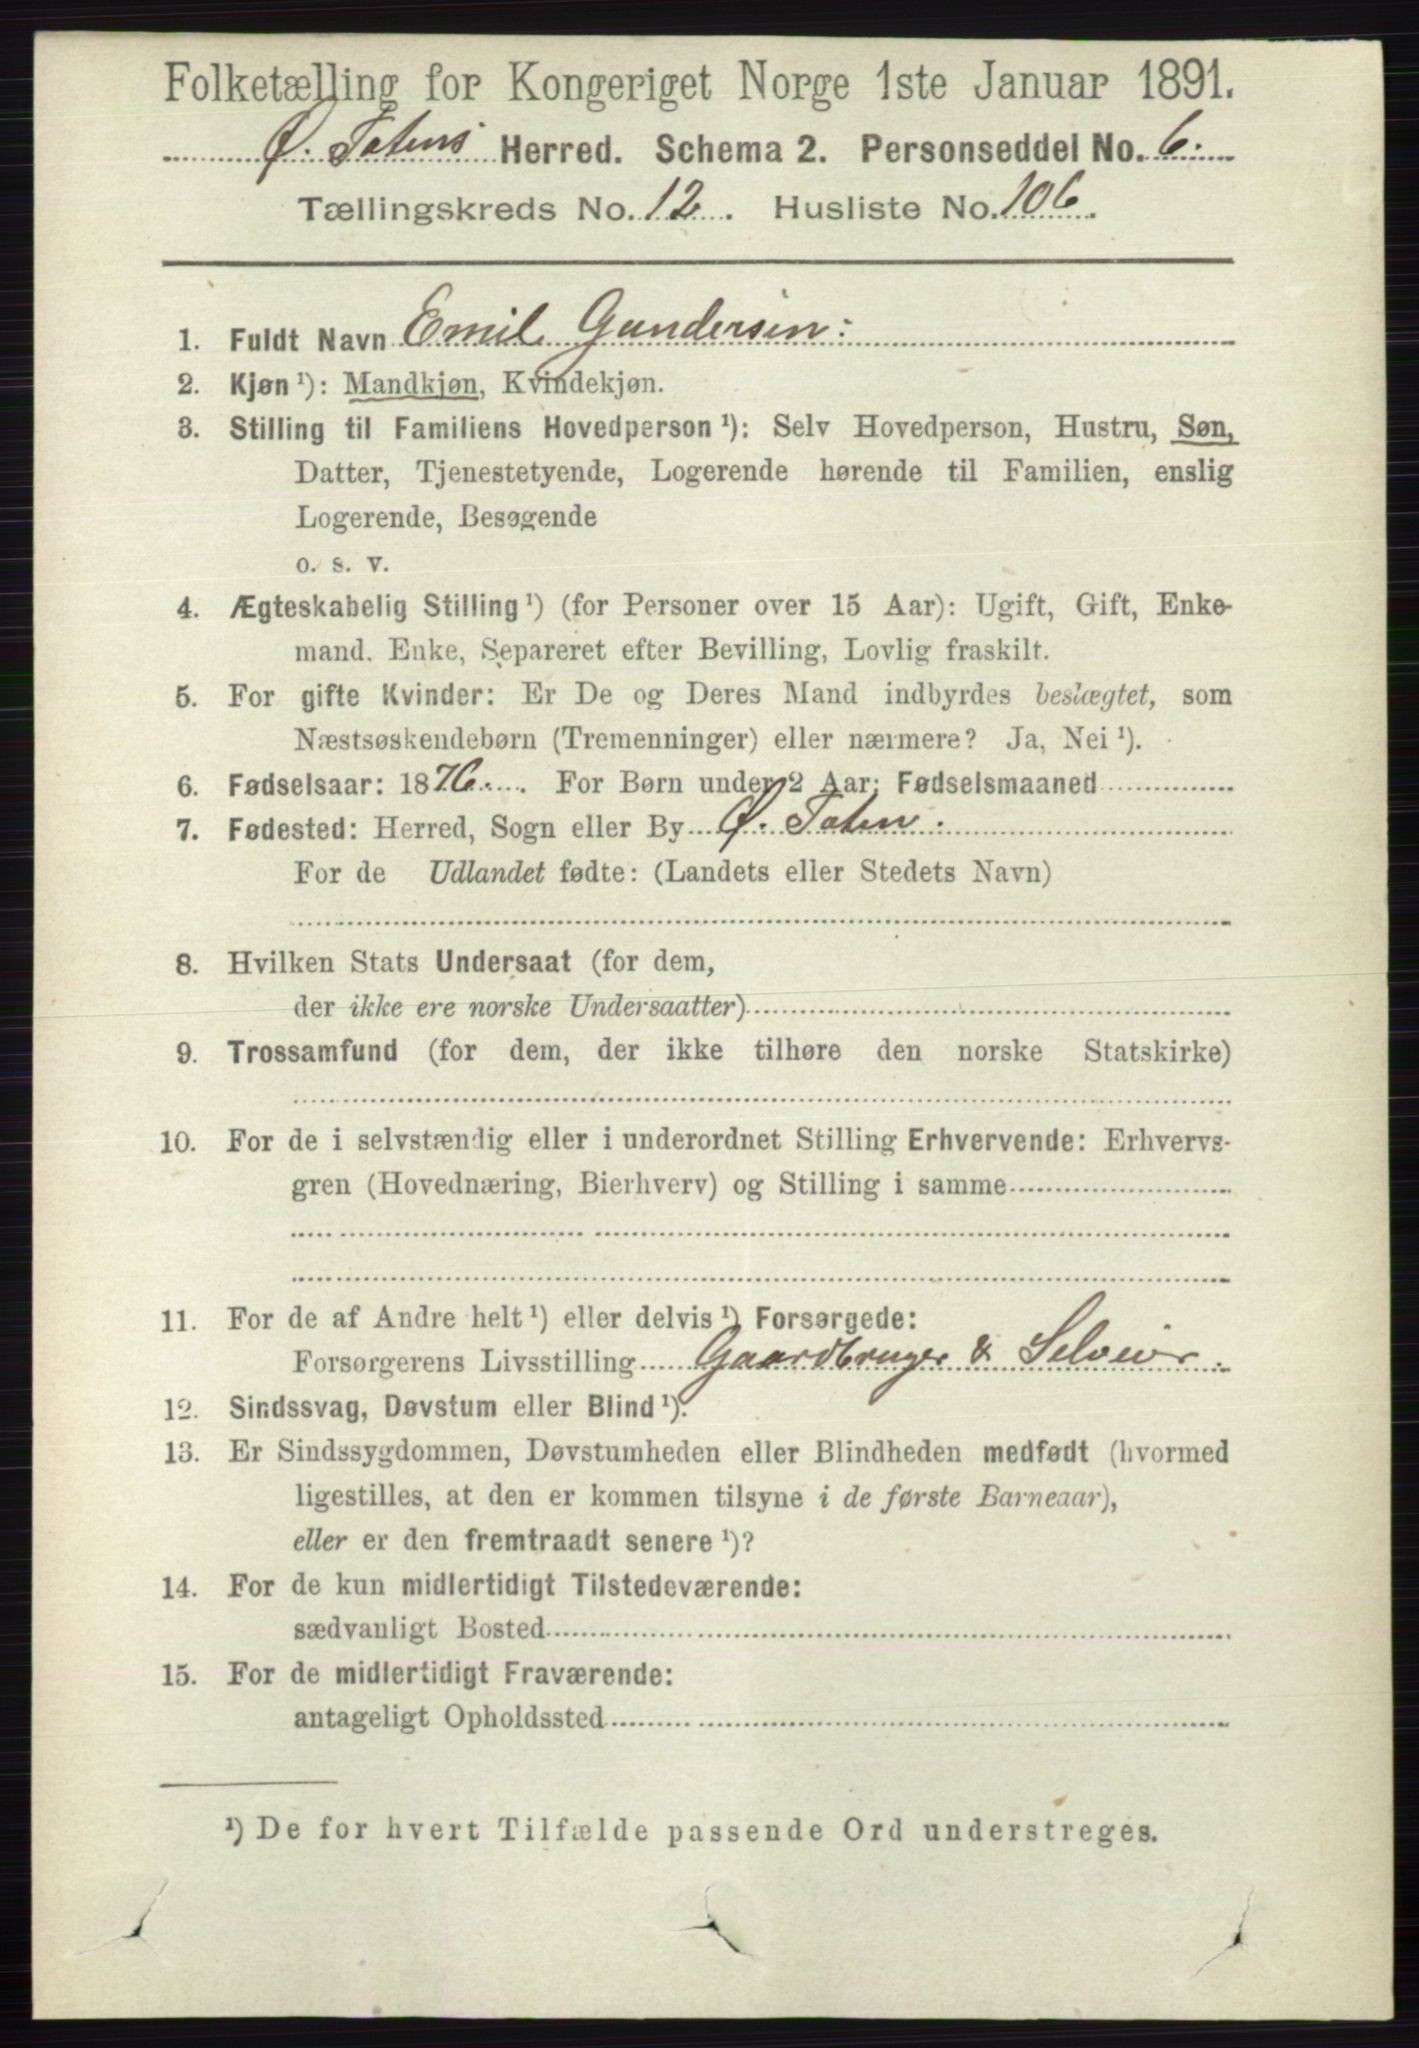 Folketælling for Kongeriget Norge 1ste Januar 1891.
Ø. Totens Herred. Schema 2. Personseddel No. 6.
Tællingskreds No. 12. Husliste No. 106.
1. Fuldt Navn Emil Gundersen:
2. Kjøn ¹): Mandkjøn, Kvindekjøn.
3. Stilling til Familiens Hovedperson ¹): Selv Hovedperson, Hustru, Søn,
Datter, Tjenestetyende, Logerende hørende til Familien, enslig
Logerende, Besøgende
o. s. v.
4. Ægteskabelig Stilling ¹) (for Personer over 15 Aar): Ugift, Gift, Enke-
mand, Enke, Separeret efter Bevilling, Lovlig fraskilt.
5. For gifte Kvinder: Er De og Deres Mand indbyrdes beslægtet, som
Næstsøskendebørn (Tremenninger) eller nærmere? Ja, Nei ¹).
6. Fødselsaar: 1876. For Børn under 2 Aar: Fødselsmaaned
7. Fødested: Herred, Sogn eller By Ø. Toten.
For de Udlandet fødte: (Landets eller Stedets Navn)
8. Hvilken Stats Undersaat (for dem,
der ikke ere norske Undersaatter)
9. Trossamfund (for dem, der ikke tilhøre den norske Statskirke)
10. For de i selvstændig eller i underordnet Stilling Erhvervende: Erhvervs-
gren (Hovednæring, Bierhverv) og Stilling i samme
11. For de af Andre helt ¹) eller delvis ¹) Forsørgede:
Forsørgerens Livsstilling Gaardbruger & Selveier.
12. Sindssvag, Døvstum eller Blind ¹).
13. Er Sindssygdommen, Døvstumheden eller Blindheden medfødt (hvormed
ligestilles, at den er kommen tilsyne i de første Barneaar),
eller er den fremtraadt senere ¹)?
14. For de kun midlertidigt Tilstedeværende:
sædvanligt Bosted
15. For de midlertidigt Fraværende:
antageligt Opholdssted
¹) De for hvert Tilfælde passende Ord understreges.